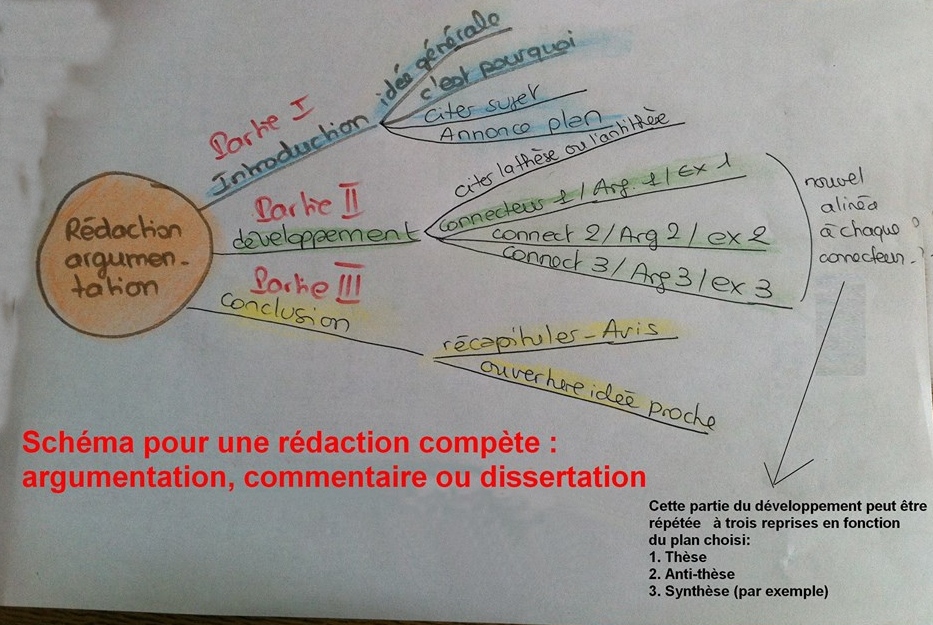 Partie I
Introduction
idée générale
c'est pourquoi
citer sujet
Annonce plan
Partie II
développement
citer la thèse ou l'antithèse
connecteur 1 / Arg. 1 / Ex 1
connect 2 / Arg 2 / ex 2
connect 3 / Arg 3 / ex 3
nouvel
alinéa
à chaque
connecteur
Rédaction
argumen-
tation
Partie III
conclusion
récapitules - Avis
ouverture idée proche
Schéma pour une rédaction compète :
argumentation, commentaire ou dissertation
Cette partie du développement peut être
répétée à trois reprises en fonction
du plan choisi:
1. Thèse
2. Anti-thèse
3. Synthèse (par exemple)